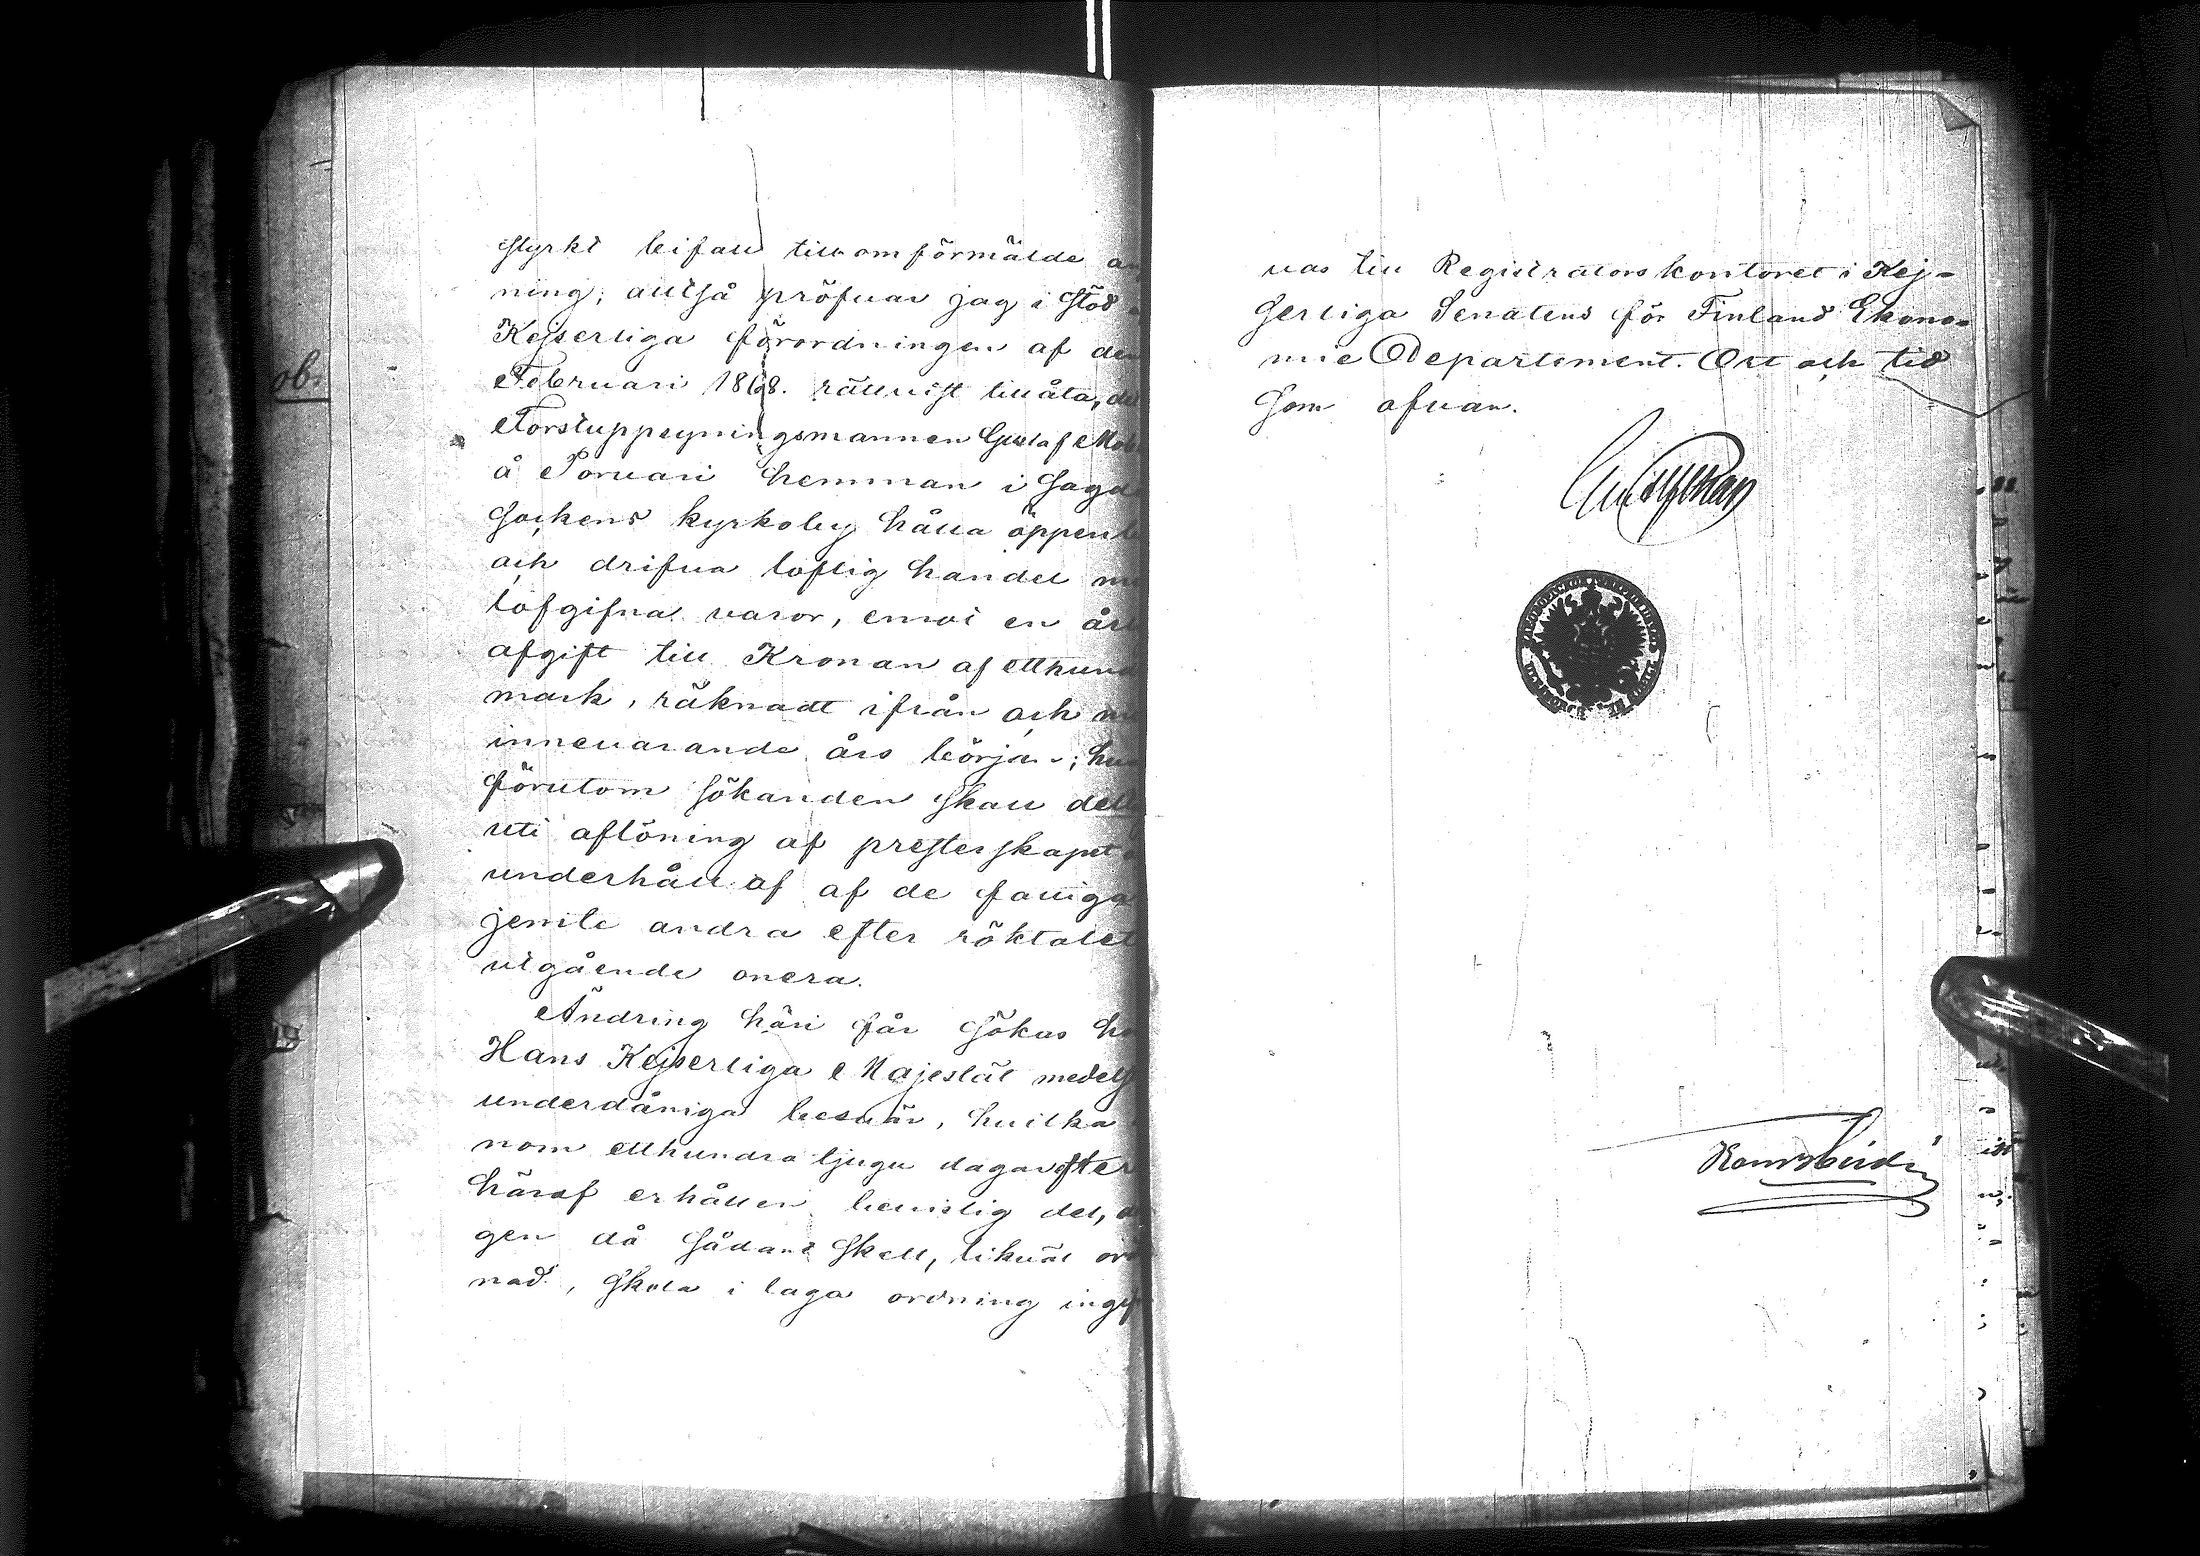 styrkt bifall till omförmälde
ning; alltså pröfvar jag i stöd
Kejserliga förordningen af den
Februari 1868. rättvist tillåta,
Torstuppsyningsmannen Gustaf
å Porvari hemman i
sockens kyrkoby hålla öppen
och drifva loflig handel
lofgifna varor, emot en
afgift till Kronan af etthund
mark, räknadt ifrån och
innevarande års början;
förutom sökanden skall
uti aflöning af presterskapet
underhåll af af de fattiga
jemte andra efter röktalet
utgående onera.
Ändring häri får sökas
Hans Kejserliga Majestät medelst
underdåniga besvär, hvilka
nom etthundra tjugu dagar efter
häraf erhållen bevislig del,
gen då sådant skett, likväl
nad, skola i laga ordning ingif
ob.
vas till Registratorskontoret i Kej-
serliga Senatens för Finland Ekono-
mie Departement. Ort och tid
som ofvan.